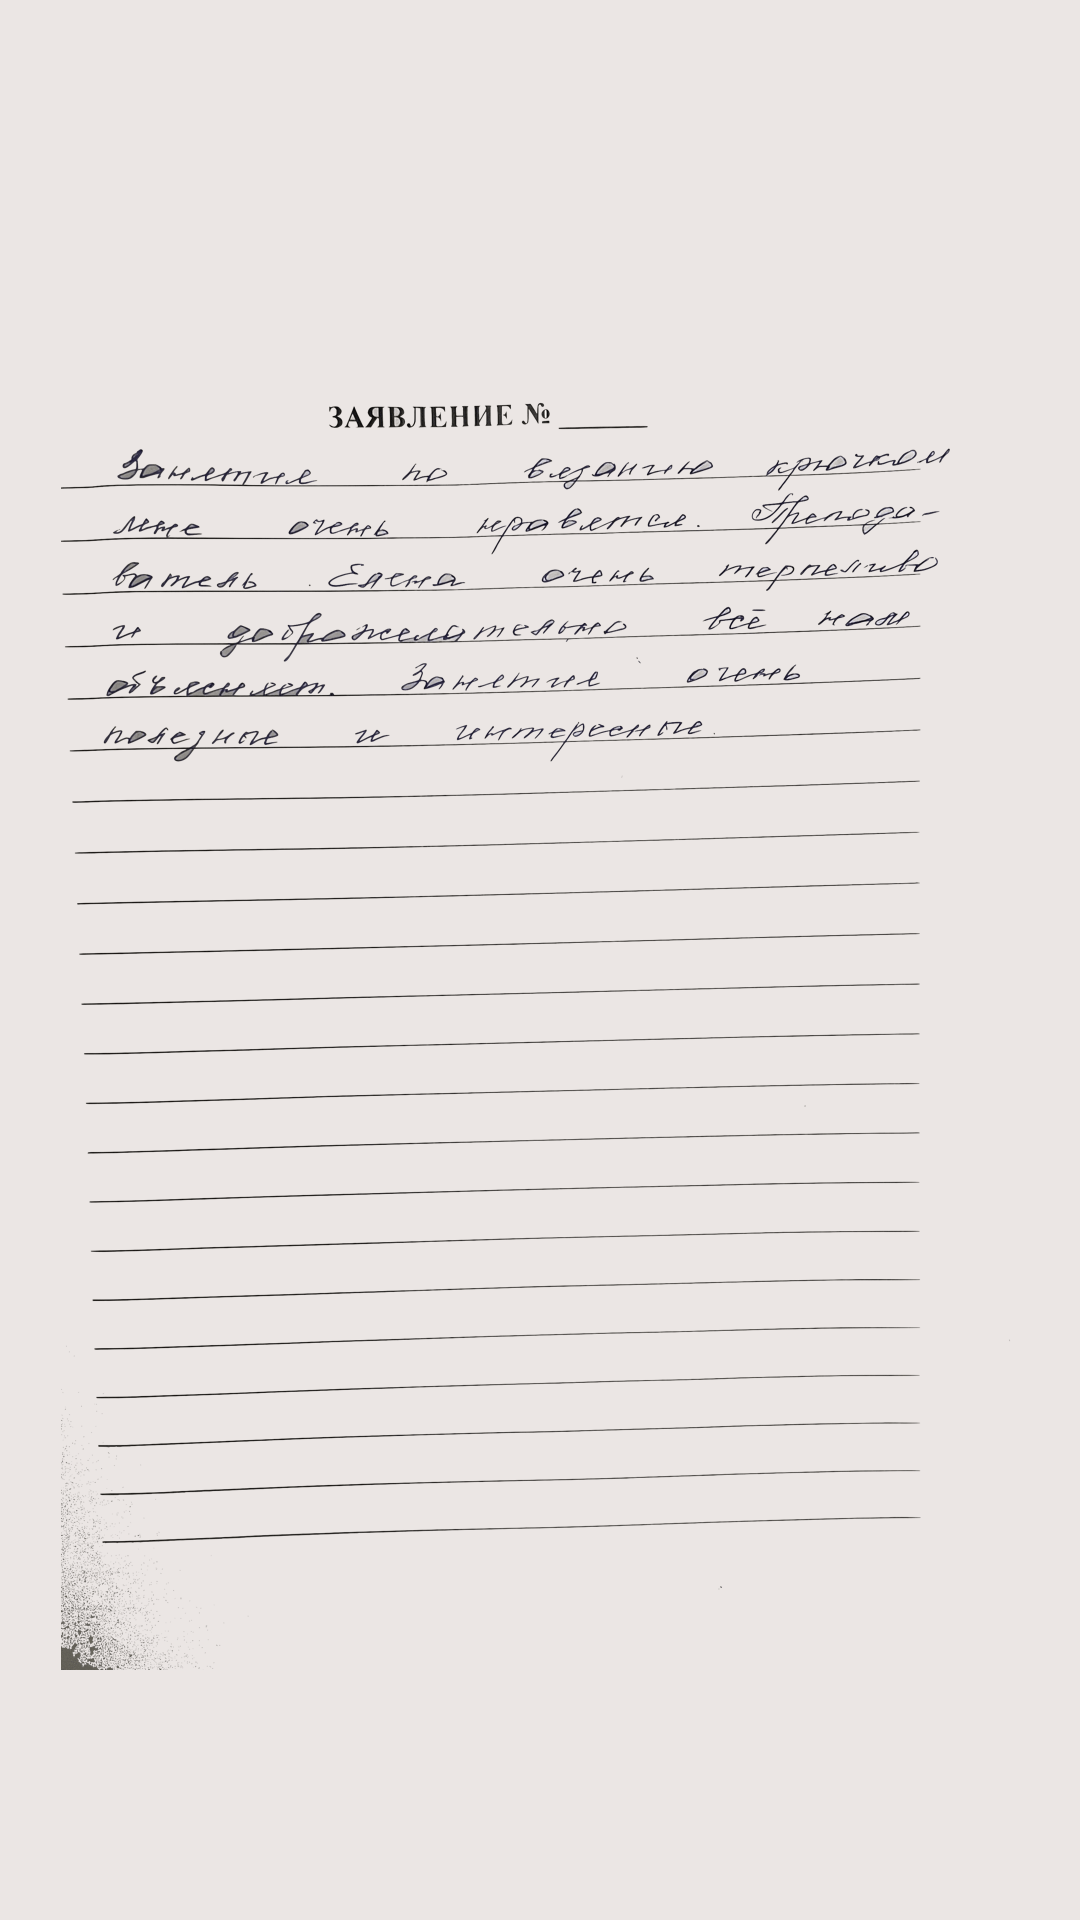 ЗАЯВЛЕНИЕ № ______
Занятия по вязанию крючком
мне очень нравятся. Препода-
ватель Елена очень терпеливо
и доброжелательно всё нам
объясняет. Занятия очень
полезные и интересные.